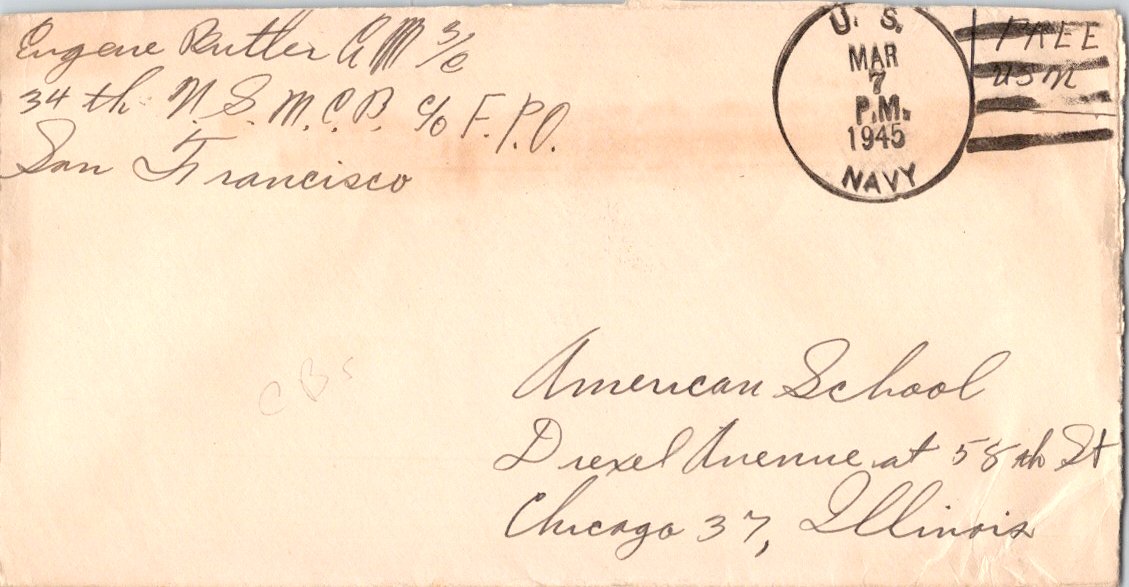 Eugene Rutler AM 3/c
34 th N.S.M.C.B. c/o F.P.O.
San Francisco
U. S.
MAR
7
P.M.
1945
NAVY
FREE
USM
CBs
American School
Drexel Avenue at 58 th St
Chicago 37, Illinois